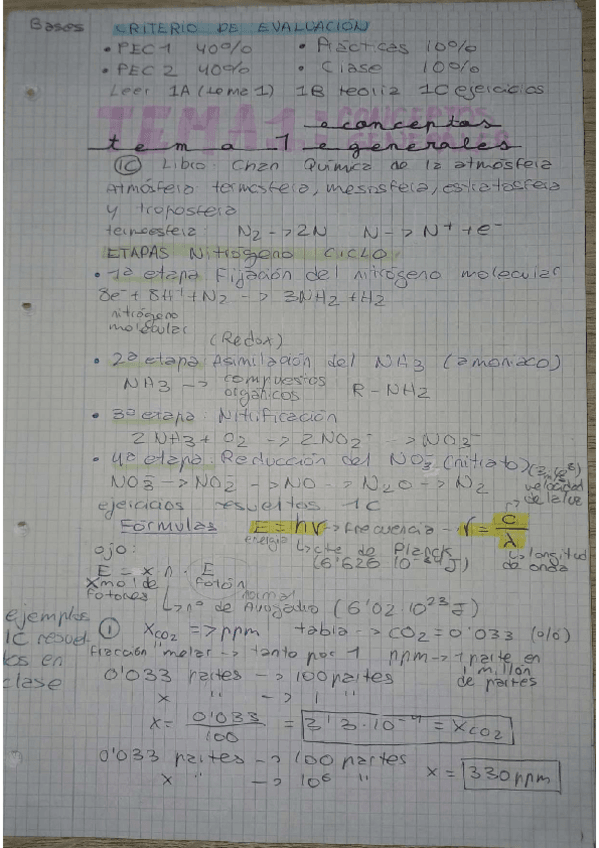 Bases CRITERIO DE EVALUACIÓN
• PEC 1 40% • Prácticas 10%
• PEC 2 40% • Clase 10%
Leer 1A (tema 1) 1B teoría 1C ejercicios
TEMA 1: CONCEPTOS GENERALES
tema 1 conceptos generales
1C Libro: Chan Química de la atmósfera
Atmósfera: termosfera, mesosfera, estratosfera
y troposfera
termosfera: N2 -> 2N N -> N⁺ + e⁻
ETAPAS Nitrógeno CICLO:
• 1ª etapa Fijación del nitrógeno molecular
8e⁻ + 8H⁺ + N2 -> 3NH2 + H2
nitrógeno
molecular
(Redox)
• 2ª etapa: Asimilación del NH3 (amoniaco)
NH3 -> compuestos orgánicos R-NH2
• 3ª etapa: Nitrificación
2NH3 + O2 -> 2NO2⁻ -> NO3⁻
• 4ª etapa: Reducción del NO3⁻ (nitrato)
NO3⁻ -> NO2⁻ -> NO -> N2O -> N2
velocidad
de la luz
ejercicios resueltos 1C
Fórmulas E = hν -> frecuencia - ν = c/λ
energía cte de Planck
longitud
de onda
ojo:
E = x n · E
X mol de fotones fotón
nº de Avogadro (6'02 10²³
ejemplos
1C resuel-
tos en
clase
① XCO2 => ppm tabla -> CO2 = 0'033 (%)
fracción molar -> tanto por 1 ppm -> 1 parte en
1 millón
de partes
0'033 partes -> 100 partes
x " -> 1 "
x = 0'033/100 = 3'3·10⁻⁴ = XCO2
0'033 partes -> 100 partes
x " -> 10⁶ " x = 330 ppm